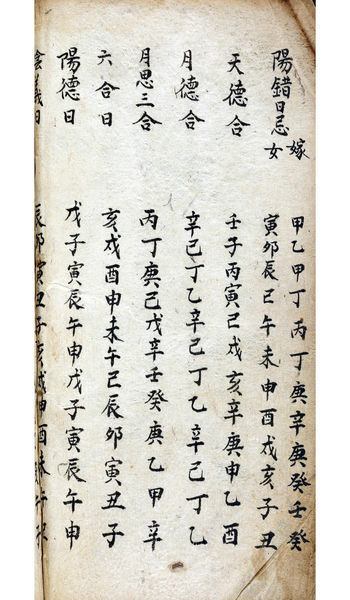 陽錯日忌嫁女
甲乙甲丁丙丁庚辛庚癸壬癸
寅卯辰巳午未申酉戌亥子丑
天德合 壬子丙寅己戌亥辛庚申乙酉
月德合 辛己丁乙辛己丁乙辛己丁乙
月思三合 丙丁庚己戊辛壬癸庚乙甲辛
六合日 亥戌酉申未午巳辰卯寅丑子
陽德日 戌子寅辰午申戌子寅辰午申
日 辰卯寅丑子亥戌申酉未午